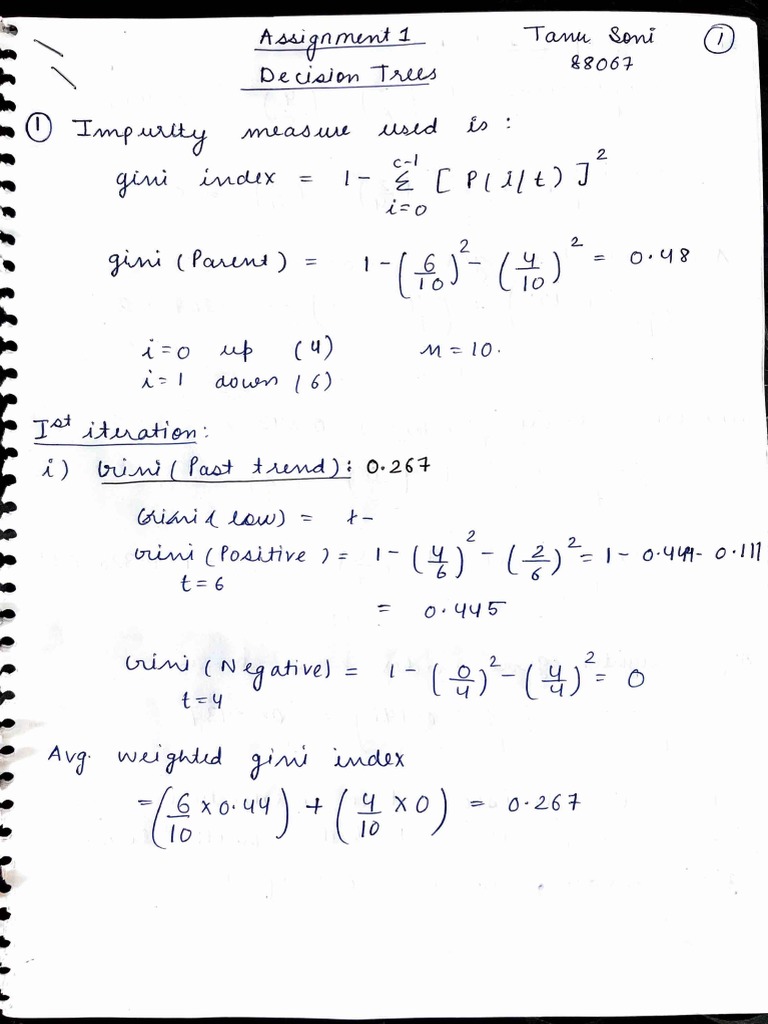 Assignment 1 Tanu Soni ①
Decision Trees 88067
① Impurity measure used is :
gini index = 1 - Σ [ P(i/t) ]²
c-1
i=0
gini (Parent) = 1 - (6/10)² - (4/10)² = 0.48
i=0 up (4) n=10.
i=1 down (6)
Ist iteration:
i) Gini (Past trend): 0.267
Gini (low) = t-
Gini (Positive) = 1 - (4/6)² - (2/6)² = 1 - 0.444 - 0.111
t=6
= 0.445
Gini (Negative) = 1 - (0/4)² - (4/4)² = 0
t=4
Avg. weighted gini index
= (6/10 x 0.44) + (4/10 x 0) = 0.267